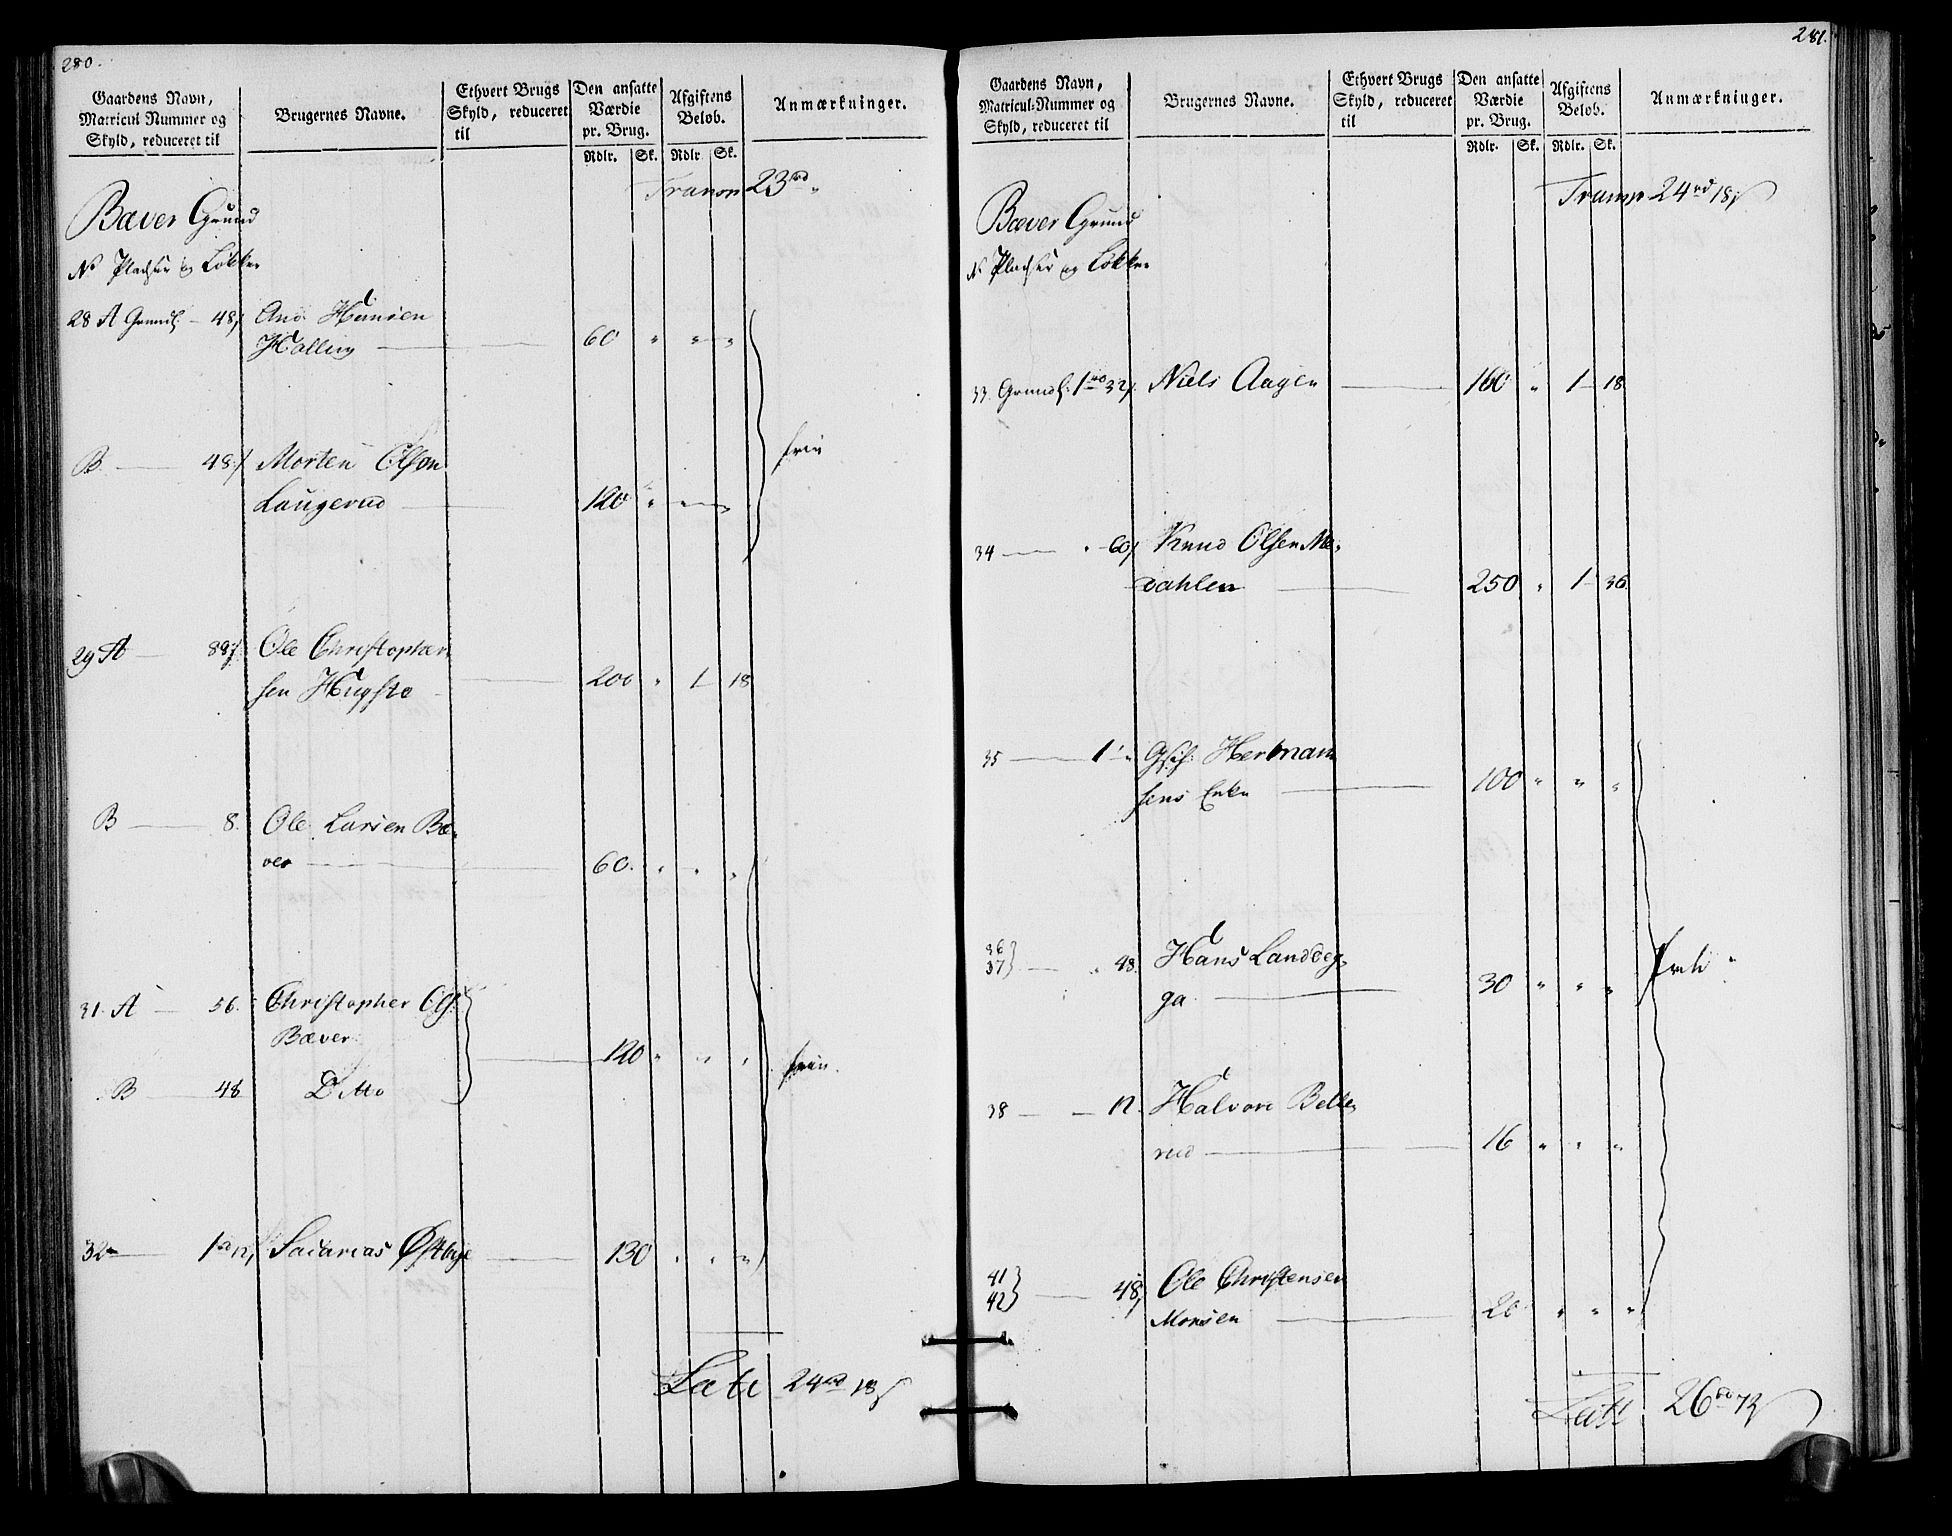 280.
Gaardens Navn,
Matricul Nummer og
Skyld, reduceret til
Brugernes Navne.
Ethvert Brugs
Skyld, reduceret
til
Den ansatte
Værdie
pr. Brug.
Afgiftens
Beløb.
Anmærkninger.
Rdlr. Sk. Rdlr Sk.
Transp 23 rd "
Bæver Grund
No Pladser og Løkker
28 A Grundl. – 48 And: Hansen
Halling — 60 " " "
B. — 48 Morten Olsen
Laugerud — 120 " " "
frie
29 A — 88 Ole Christopher
sen — 200 " 1 – 18
B — 8. Ole Larsen Bæ-
ver — 60. " " "
31. A — 56. Christopher Ols:
Bæver — 120 " " "
frie.
B — 48 Ditto
32 — 1 rd 12 Sacarias Østbye — 130 " " "
Late 24 rd 18
281.
Gaardens Navn,
Matricul-Nummer og
Skyld, reduceret til
Brugernes Navne.
Ethvert Brugs
Skyld, reduceret
til
Den ansatte
Værdie
pr. Brug.
Afgiftens
Beløb.
Anmærkninger.
Rdlr. Sk. Rdlr. Sk.
Transp 24 rd 18
Bæver Grund
No Pladser og Løkker
33. Grundl: 1 rd 32 Niels Aagen — 160 " 1 – 18
34 — " – 60 Knud Olsen Me-
dahlen — 250 " 1 – 36
35 — 1 " Herman
sens Enke — 100 " " "
36
37 } — " 48. Hans Landdeg-
ga — 30 " " "
frie
38 — 12. Halvor Belle-
rud — 16 " " "
41
42 } — 48 Ole Christensen
Monsen — 20 " " "
Late 26 rd 72